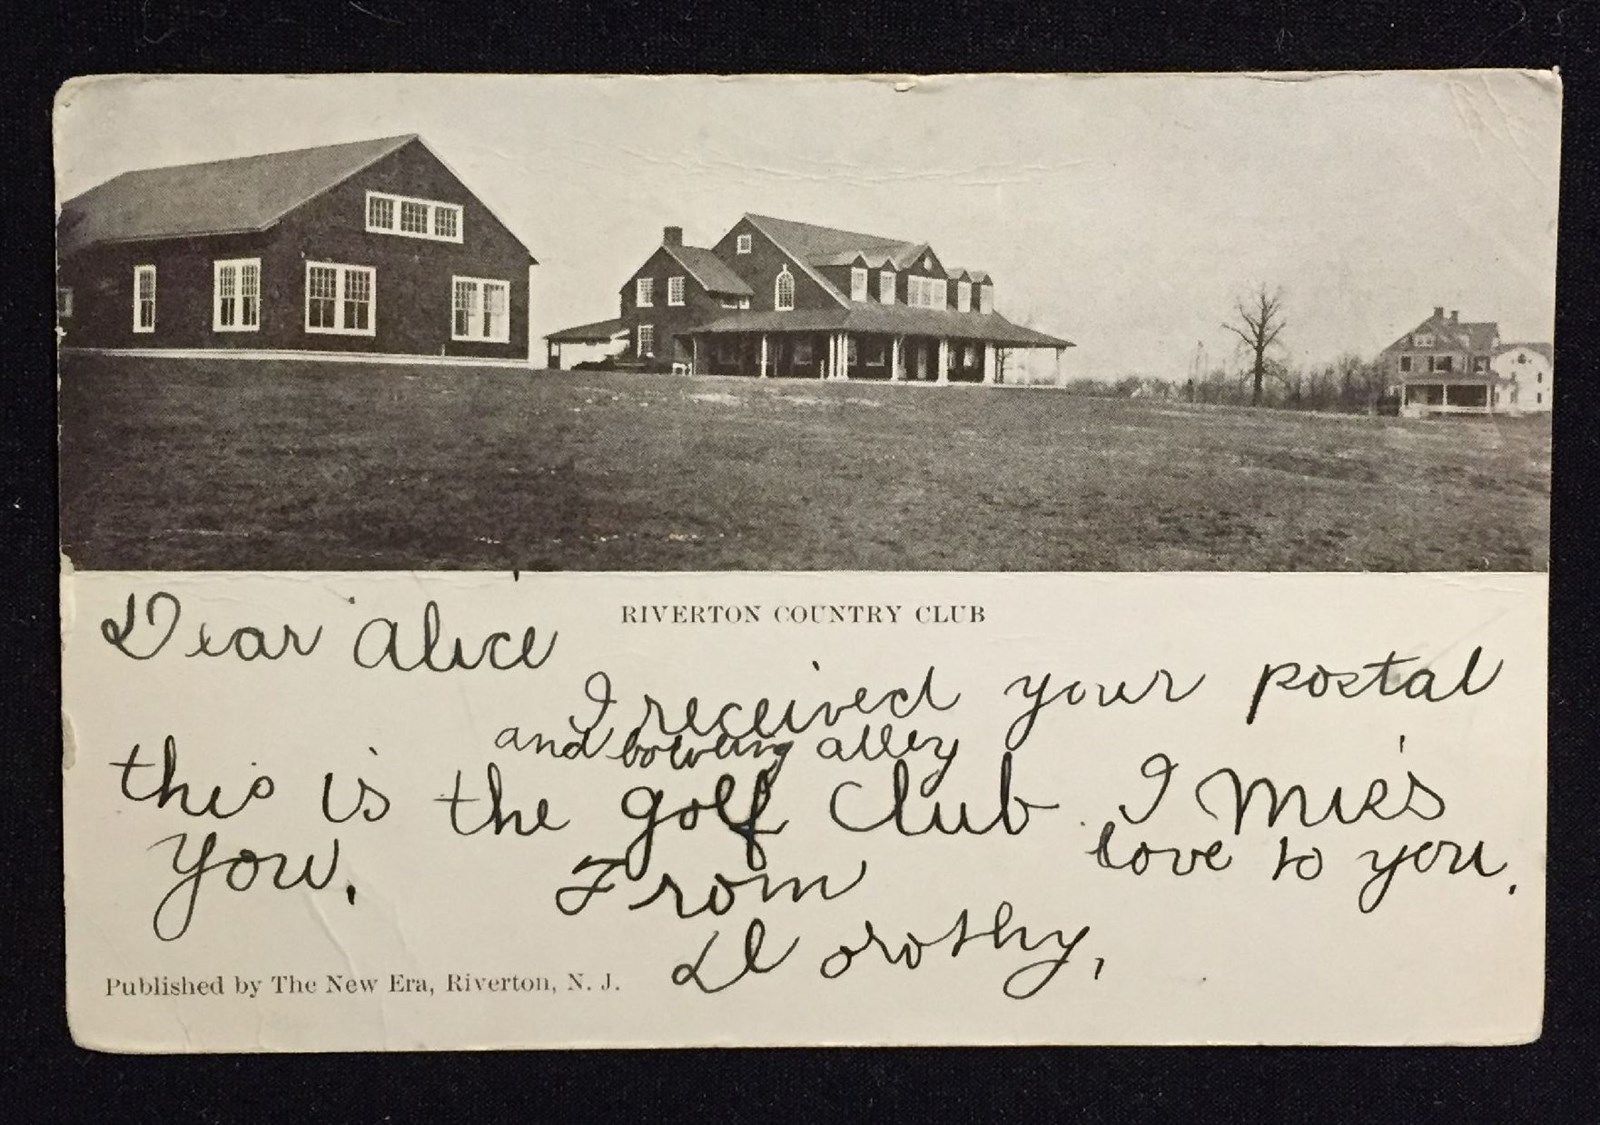 RIVERTON COUNTRY CLUB
Dear Alice
I received your postal
and bowling alley
this is the golf Club. I Miss
You. love to you.
From
Dorothy,
Published by The New Era, Riverton, N. J.